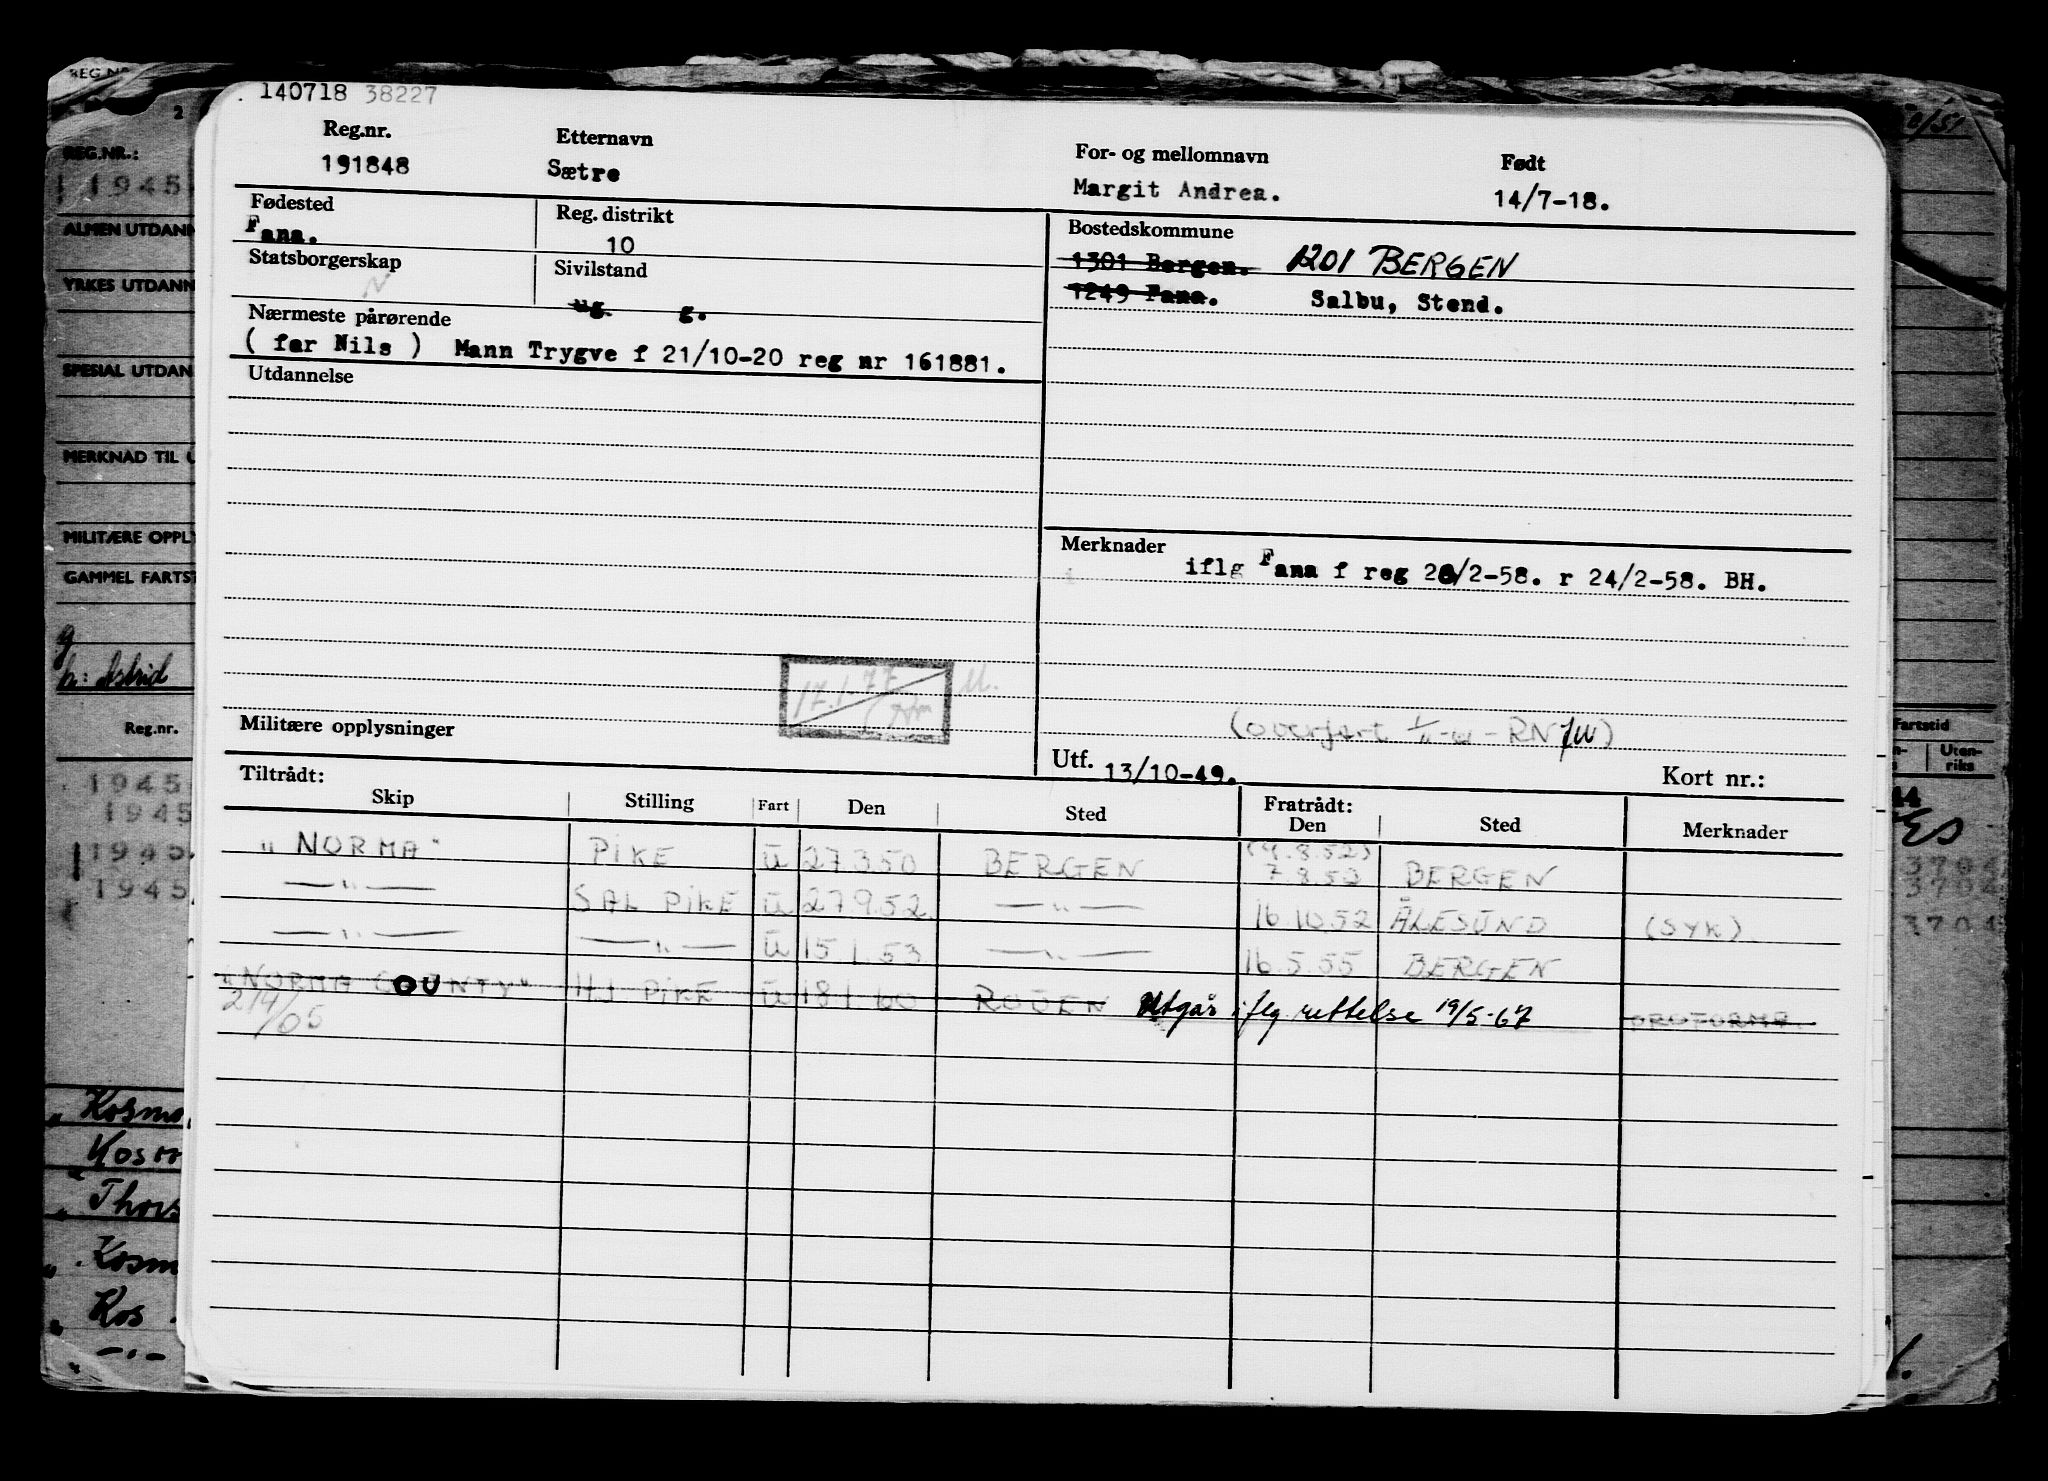 140718 38227
Reg.nr. Etternavn For- og mellomnavn Født
191848 Sætre Margit Andrea. 14/7-18.
Fødested Reg. distrikt Bostedskommune
Fana. 10 1301 Bergen. 1201 BERGEN
Statsborgerskap Sivilstand 1249 Fana. Salbu, Stend.
N ug g.
Nærmeste pårørende
( far Nils ) Mann Trygve f 21/10-20 reg nr 161881.
Utdannelse
Merknader
iflg Fana f reg 20/2-58. r 24/2-58. BH.
17.1.77 M.
Militære opplysninger
(overført
Utf. 13/10-49. Kort nr.:
Tiltrådt: Fratrådt:
Skip Stilling Fart Den Sted Den Sted Merknader
(4.8.52)
"NORMA" PIKE U 27.3.50 BERGEN 7.8.52 BERGEN
—"— SAL PIKE U 27.9.52 —"— 16.10.52 ÅLESUND (SYK)
—"— —"— U 15.1.53 —"— 16.5.55 BERGEN
"NORMA COUNTY" HJ PIKE U 18.1.60 ROUEN Utgår iflg rettelse 19/5-67
214/05
REG.NR.:
1945
ALMEN UTDANN
YRKES UTDANN
SPESIAL UTDAN
MERKNAD TIL U
MILITÆRE OPPLY
GAMMEL FARTST
g
h: Astrid
Reg.nr.
1945
1945
1945
1945
" Kosmo
" Kosm
" Thors
" Kosm
" Kos
" -"-
Fartstid
Uten-
riks
44
3704
3704
3704